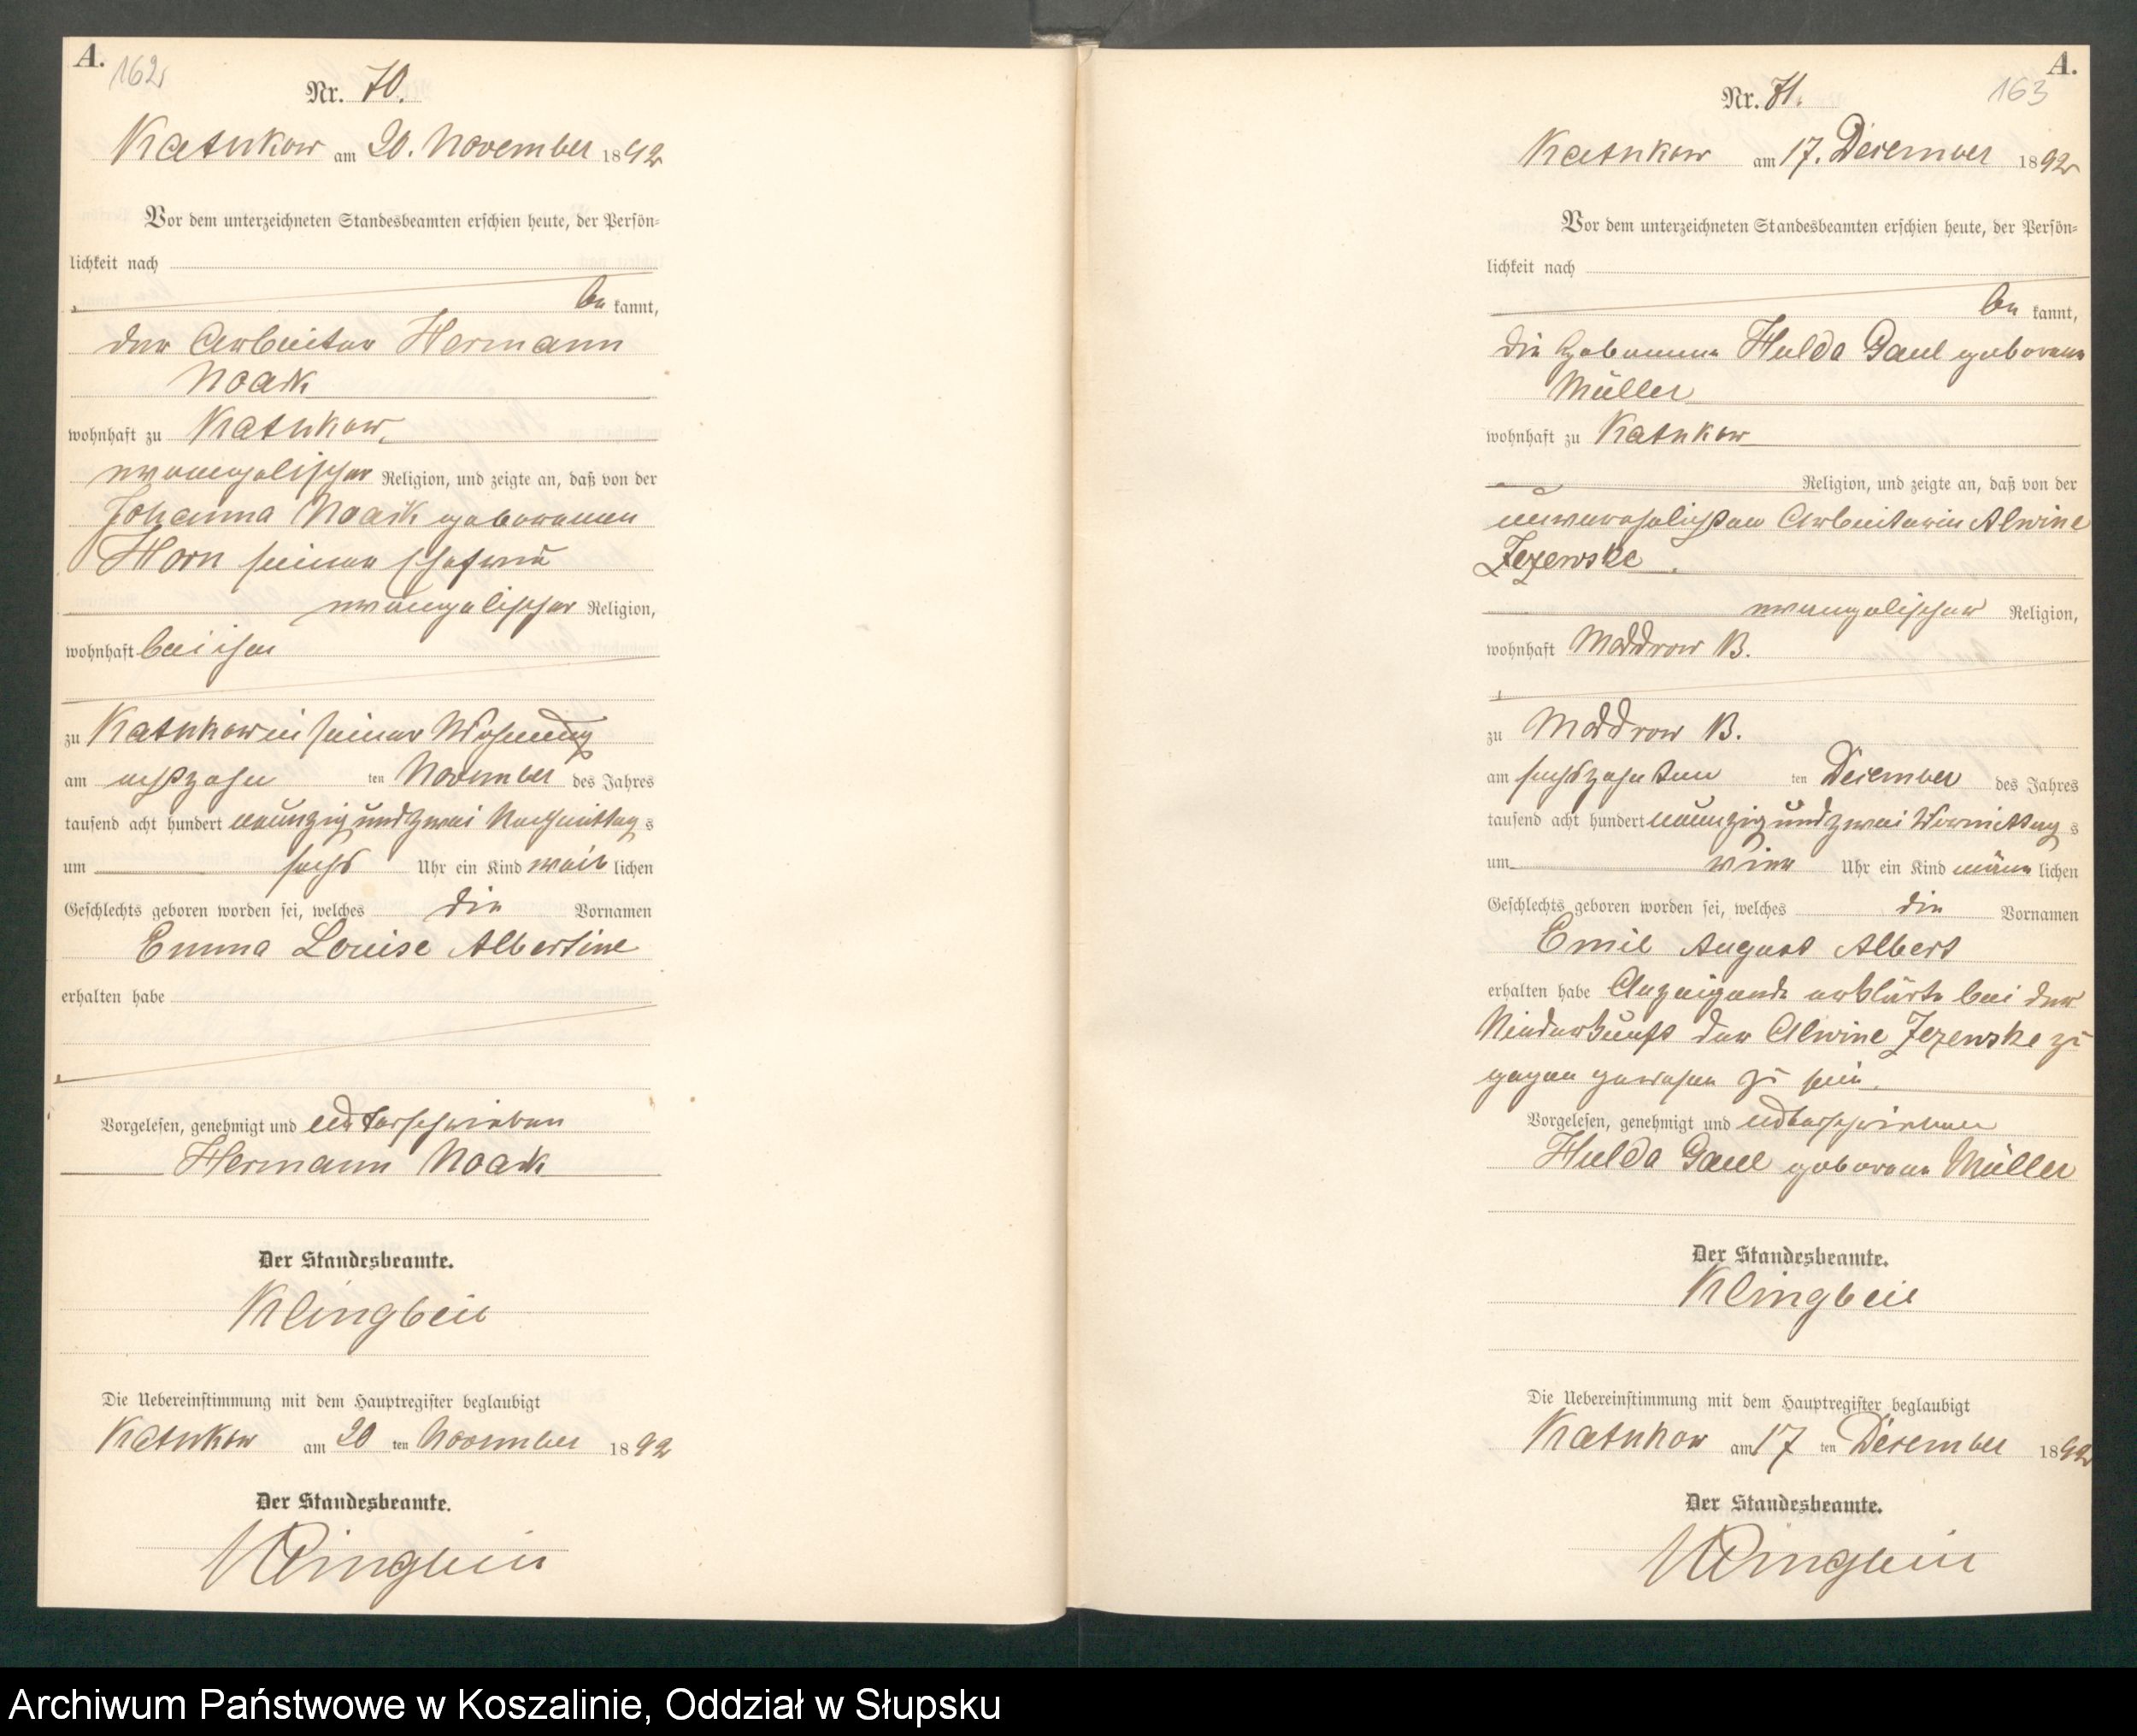 A.
162
Nr. 70.
Katzkow am 20. November 1892
Vor dem unterzeichneten Standesbeamten erschien heute, der Persön-
lichkeit nach
be kannt,
der Arbeiter Hermann
Noack
wohnhaft zu Katzkow,
evangelischer Religion, und zeigte an, daß von der
Johanna Noack geborenen
Horn seiner Ehefrau
evangelischer Religion,
wohnhaft bei ihm
zu Katzkow in seiner Wohnung
am achtzehn ten November des Jahres
tausend acht hundert neunzig und zwei Nachmittag s
um sechs Uhr ein Kind weib lichen
Geschlechts geboren worden sei, welches die Vornamen
Emma Louise Albertine
erhalten habe
Vorgelesen, genehmigt und unterschrieben
Hermann Noack
Der Standesbeamte.
Klingbeil
Die Uebereinstimmung mit dem Hauptregister beglaubigt
Katzkow am 20 ten November 1892
Der Standesbeamte.
Klingbeil
A.
163
Nr. 71.
Katzkow am 17. December 1892
Vor dem unterzeichneten Standesbeamten erschien heute, der Persön-
lichkeit nach
be kannt,
die Hebamme Hulda Gaul geborene
Müller
wohnhaft zu Katzkow
Religion, und zeigte an, daß von der
unverehelichten Arbeiterin Alwine
Jezewske
evangelischer Religion,
wohnhaft Moddrow B.
zu Moddrow B.
am sechszehnten ten December des Jahres
tausend acht hundert neunzig und zwei Vormittag s
um vier Uhr ein Kind männ lichen
Geschlechts geboren worden sei, welches die Vornamen
Emil August Albert
erhalten habe Anzeigende erklärte bei der
Niederkunft der Alwine Jezewske zu
gegen gewesen zu sein.
Vorgelesen, genehmigt und unterschrieben
Hulda Gaul geborene Müller
Der Standesbeamte.
Klingbeil
Die Uebereinstimmung mit dem Hauptregister beglaubigt
Katzkow am 17 ten December 1892
Der Standesbeamte.
Klingbeil
Archiwum Państwowe w Koszalinie, Oddział w Słupsku